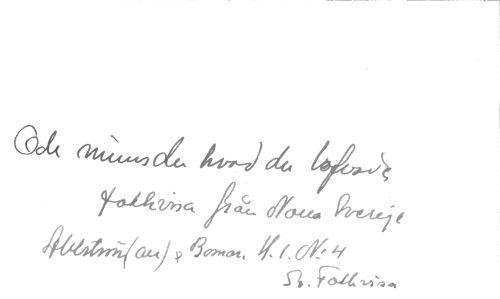 Och minns du hvad du lofvade
Folkvisa från Norra Sverige
Ahlström (au) & Boman. H. 1. No: 4
Sv. Folkvisa